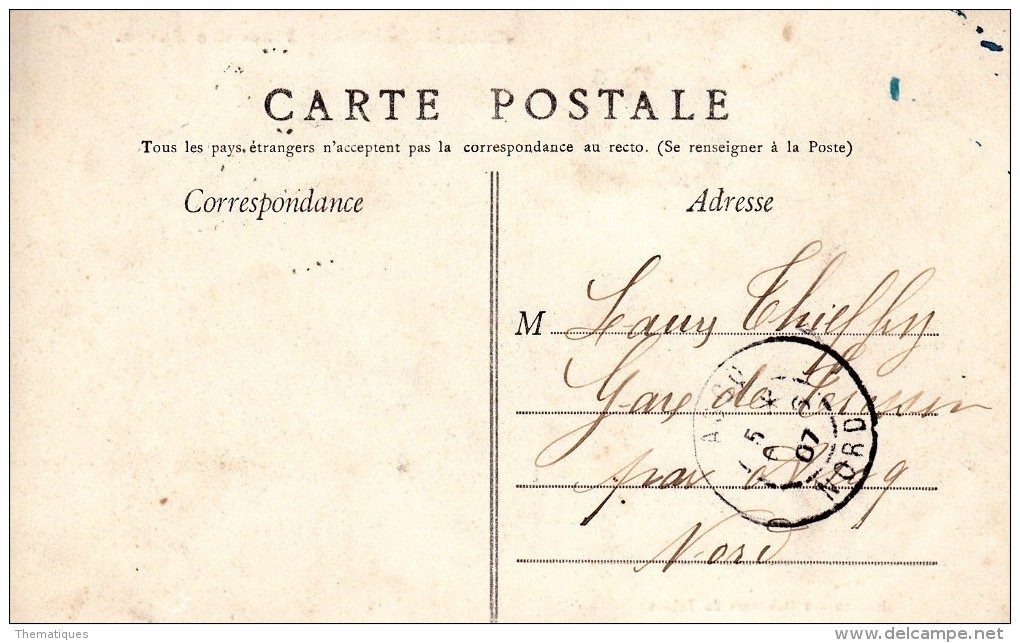 CARTE POSTALE
Tous les pays étrangers n'acceptent pas la correspondance au recto. (Se renseigner à la Poste)
Correspondance
Adresse
M
Thieffry
Gare de
par
Nord
5
07
NORD
Thématiques
delcampe.net